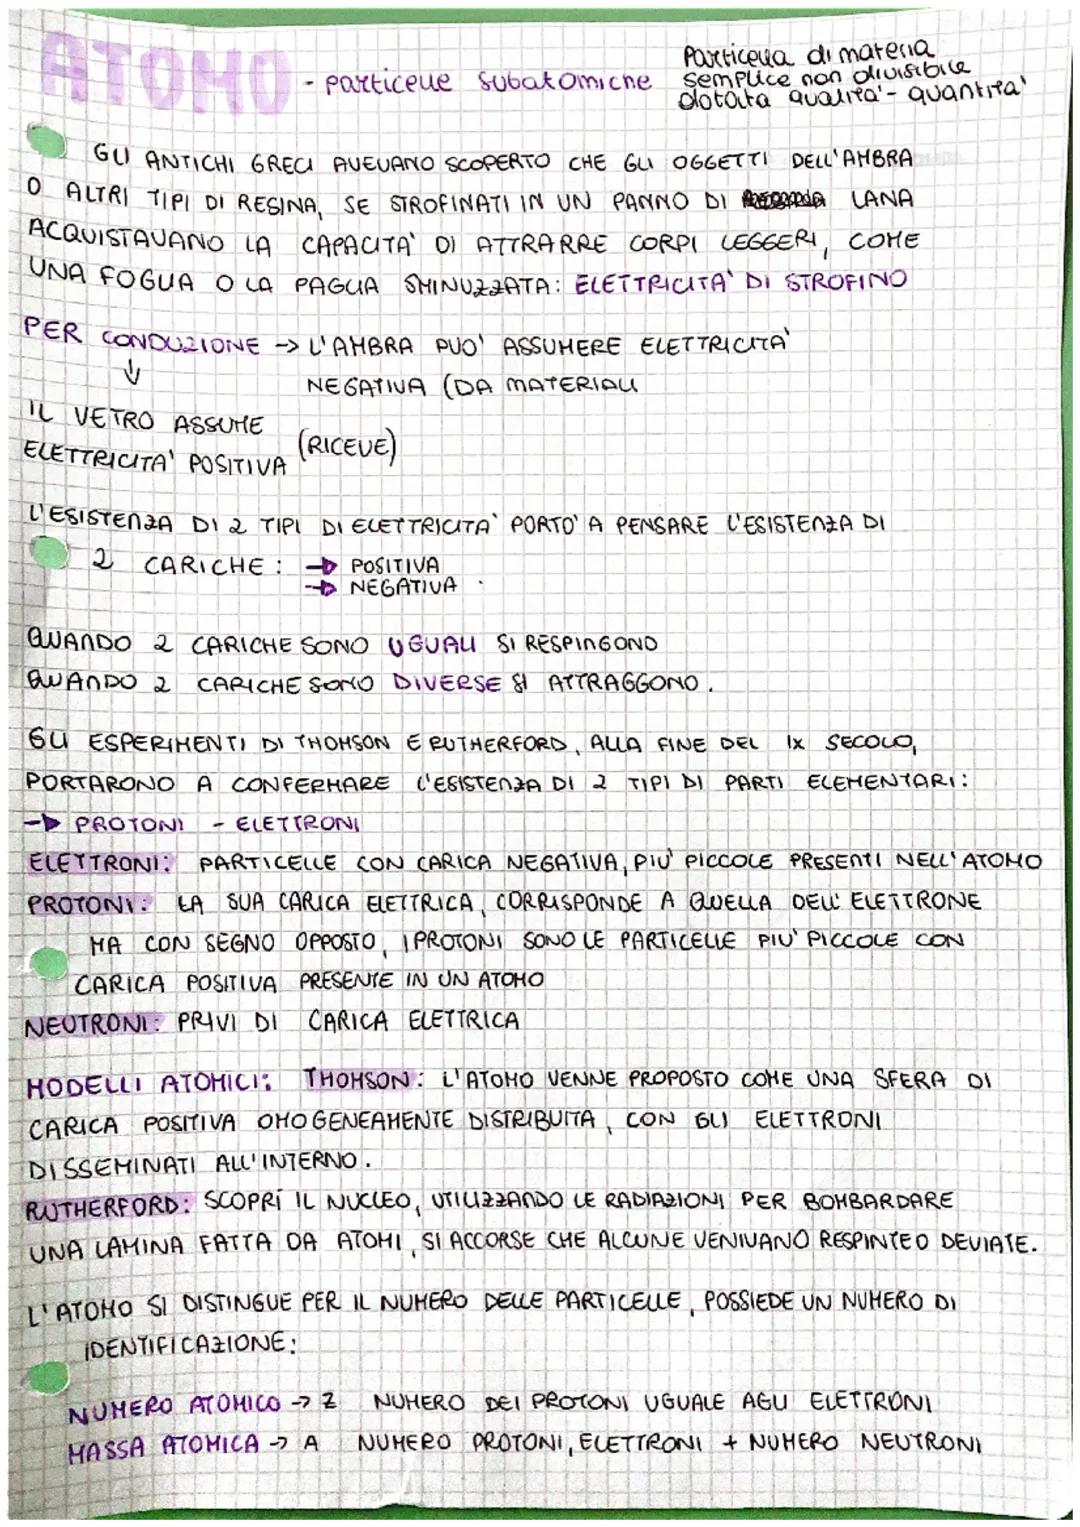 ATOMO - particelle subatomiche
Particella di materia
semplice non divisibile
dotata qualità - quantità
GLI ANTICHI GRECI AVEVANO SCOPERTO CHE GLI OGGETTI DELL'AMBRA
O ALTRI TIPI DI RESINA, SE STROFINATI IN UN PANNO DI LANA
ACQUISTAVANO LA CAPACITA' DI ATTRARRE CORPI LEGGERI, COME
UNA FOGLIA O LA PAGLIA SMINUZZATA: ELETTRICITA' DI STROFINO
PER CONDUZIONE → L'AMBRA PUO' ASSUMERE ELETTRICITA'
↓ NEGATIVA (DA MATERIALI
IL VETRO ASSUME
ELETTRICITA' POSITIVA (RICEVE)
L'ESISTENZA DI 2 TIPI DI ELETTRICITA' PORTO' A PENSARE L'ESISTENZA DI
2 CARICHE: → POSITIVA
→ NEGATIVA
QUANDO 2 CARICHE SONO UGUALI SI RESPINGONO
QUANDO 2 CARICHE SONO DIVERSE SI ATTRAGGONO.
GLI ESPERIMENTI DI THOMSON E RUTHERFORD, ALLA FINE DEL IX SECOLO,
PORTARONO A CONFERMARE L'ESISTENZA DI 2 TIPI DI PARTI ELEMENTARI:
→ PROTONI - ELETTRONI
ELETTRONI: PARTICELLE CON CARICA NEGATIVA, PIU' PICCOLE PRESENTI NELL'ATOMO
PROTONI: LA SUA CARICA ELETTRICA, CORRISPONDE A QUELLA DELL'ELETTRONE
MA CON SEGNO OPPOSTO, I PROTONI SONO LE PARTICELLE PIU' PICCOLE CON
CARICA POSITIVA PRESENTE IN UN ATOMO
NEUTRONI: PRIVI DI CARICA ELETTRICA
MODELLI ATOMICI: THOMSON: L'ATOMO VENNE PROPOSTO COME UNA SFERA DI
CARICA POSITIVA OMOGENEAMENTE DISTRIBUITA, CON GLI ELETTRONI
DISSEMINATI ALL'INTERNO.
RUTHERFORD: SCOPRÌ IL NUCLEO, UTILIZZANDO LE RADIAZIONI PER BOMBARDARE
UNA LAMINA FATTA DA ATOMI, SI ACCORSE CHE ALCUNE VENIVANO RESPINTE O DEVIATE.
L'ATOMO SI DISTINGUE PER IL NUMERO DELLE PARTICELLE, POSSIEDE UN NUMERO DI
IDENTIFICAZIONE:
NUMERO ATOMICO → Z NUMERO DEI PROTONI UGUALE AGLI ELETTRONI
MASSA ATOMICA → A NUMERO PROTONI, ELETTRONI + NUMERO NEUTRONI